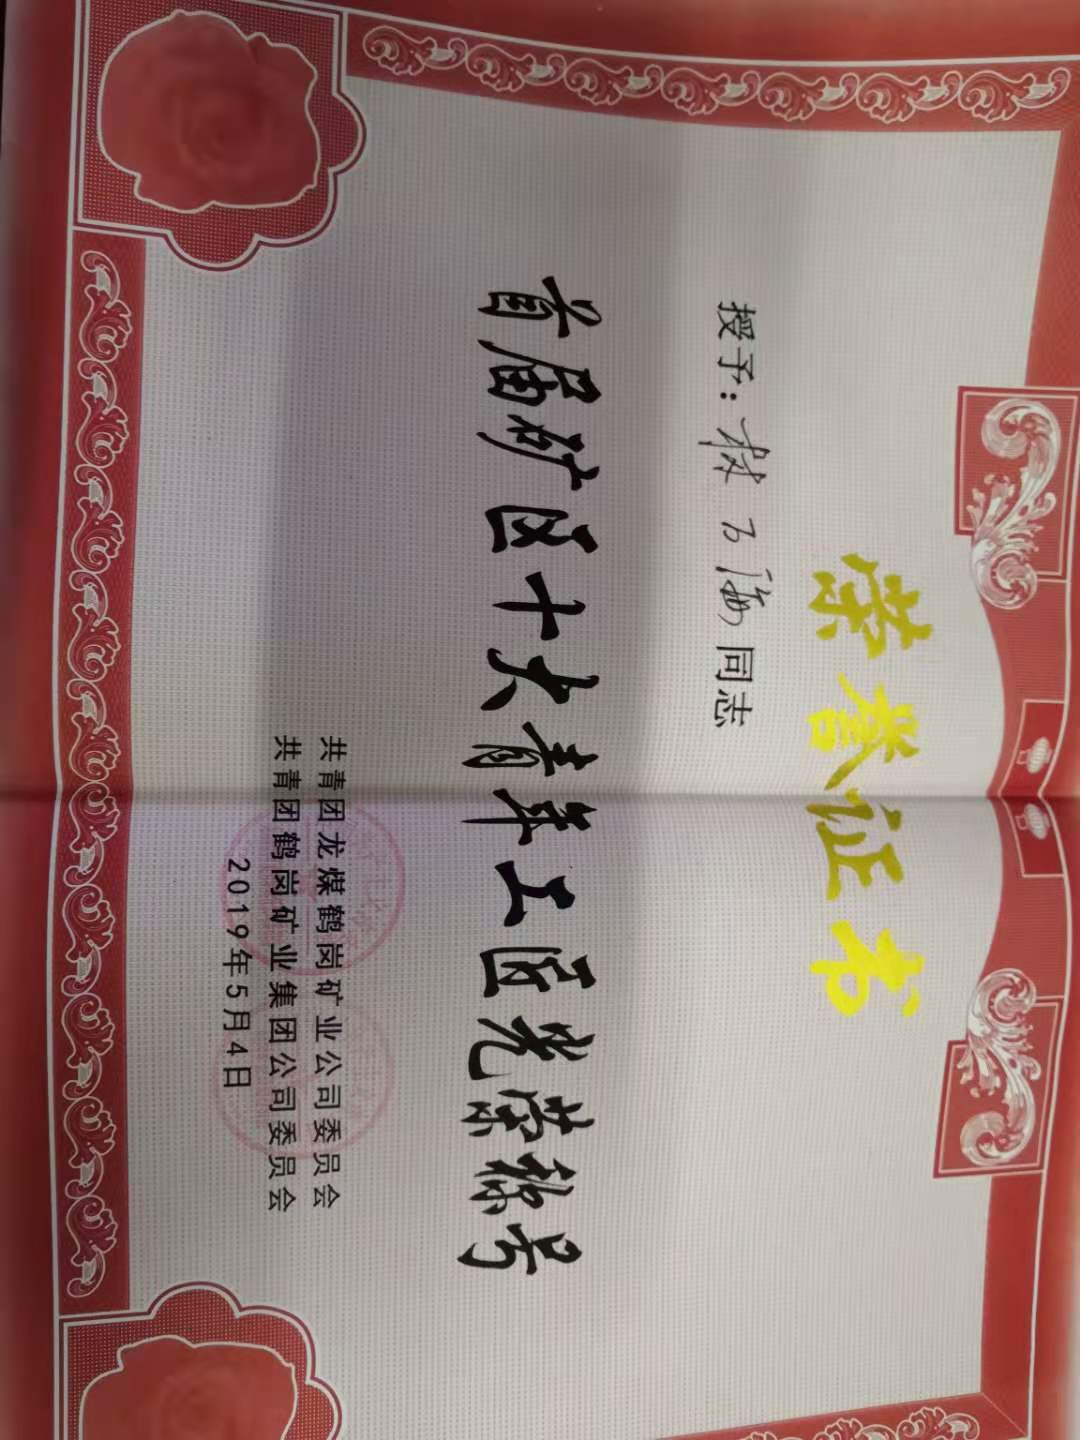 荣誉证书
授予：海同志
首届矿区十大青年工匠光荣称号
共青团龙煤鹤岗矿业公司委员会
共青团鹤岗矿业集团公司委员会
2019年5月4日